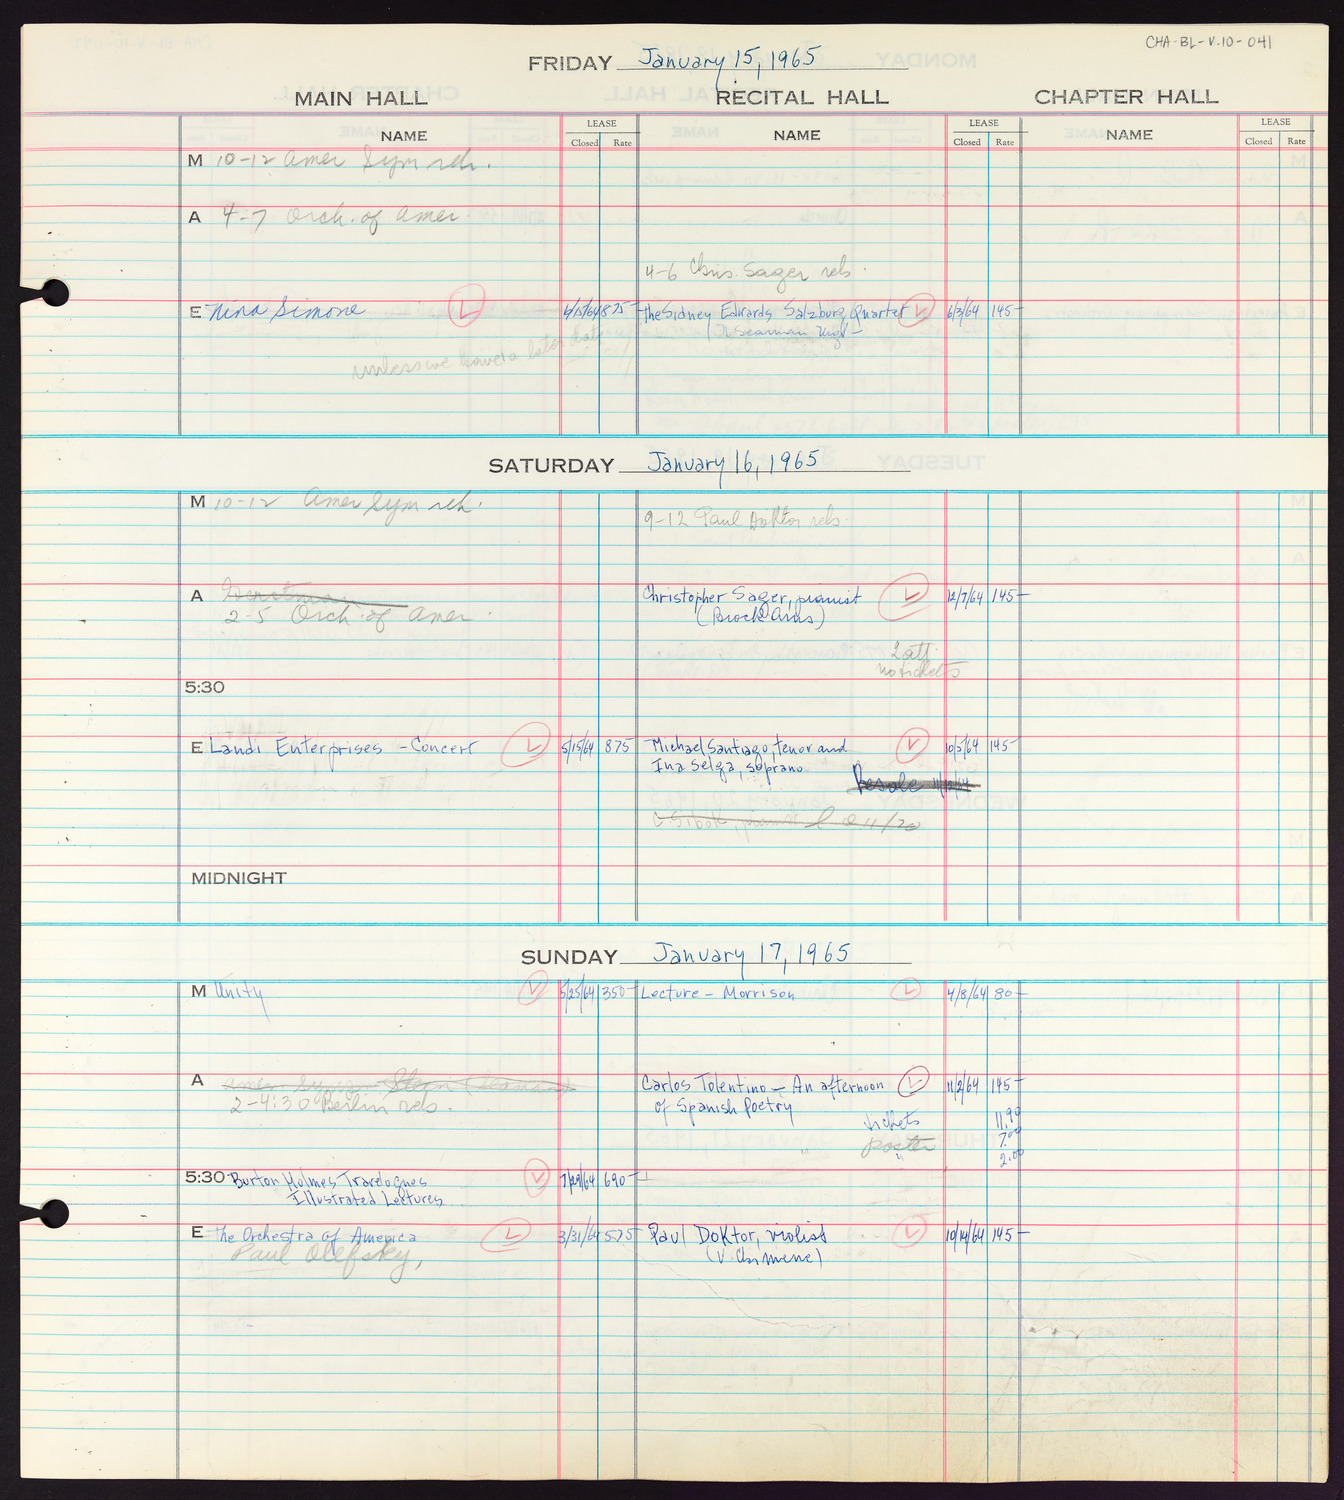 CHA-BL-V.10-041
FRIDAY January 15, 1965
MAIN HALL RECITAL HALL CHAPTER HALL
NAME LEASE Closed Rate NAME LEASE Closed Rate NAME LEASE Closed Rate
M 10-12 Amer Sym reh.
A 4-7 Orch. of Amer.
4-6 Chris. Sager reh.
E Nina Simone L 875- The Sidney Edwards Salzburg Quartet L 6/3/64 145-
unless we have a later date
SATURDAY January 16, 1965
M 10-12 Amer Sym reh.
9-12 Paul Doktor reh.
A Christopher Sager, pianist L 12/7/64 145-
2-5 Orch. of Amer.
2 att.
no tickets
5:30
E Landi Enterprises - Concert L 5/15/64 875 Michael Santiago, tenor and L 10/5/64 145-
Ina Selga, soprano
Resale
MIDNIGHT
SUNDAY January 17, 1965
M Unity L 5/25/64 350- Lecture - Morrison L 4/8/64 80-
A Carlos Tolentino - An afternoon L 11/2/64 145-
2-4:30 Berlin reh. of Spanish Poetry
tickets 11.90
poster 7.00
" 2.00
5:30 Burton Holmes Travelogues L 7/29/64 690-
Illustrated Lectures
E The Orchestra of America L 3/31/64 575 Paul Doktor, violist L 10/14/64 145-
Paul Olefsky,